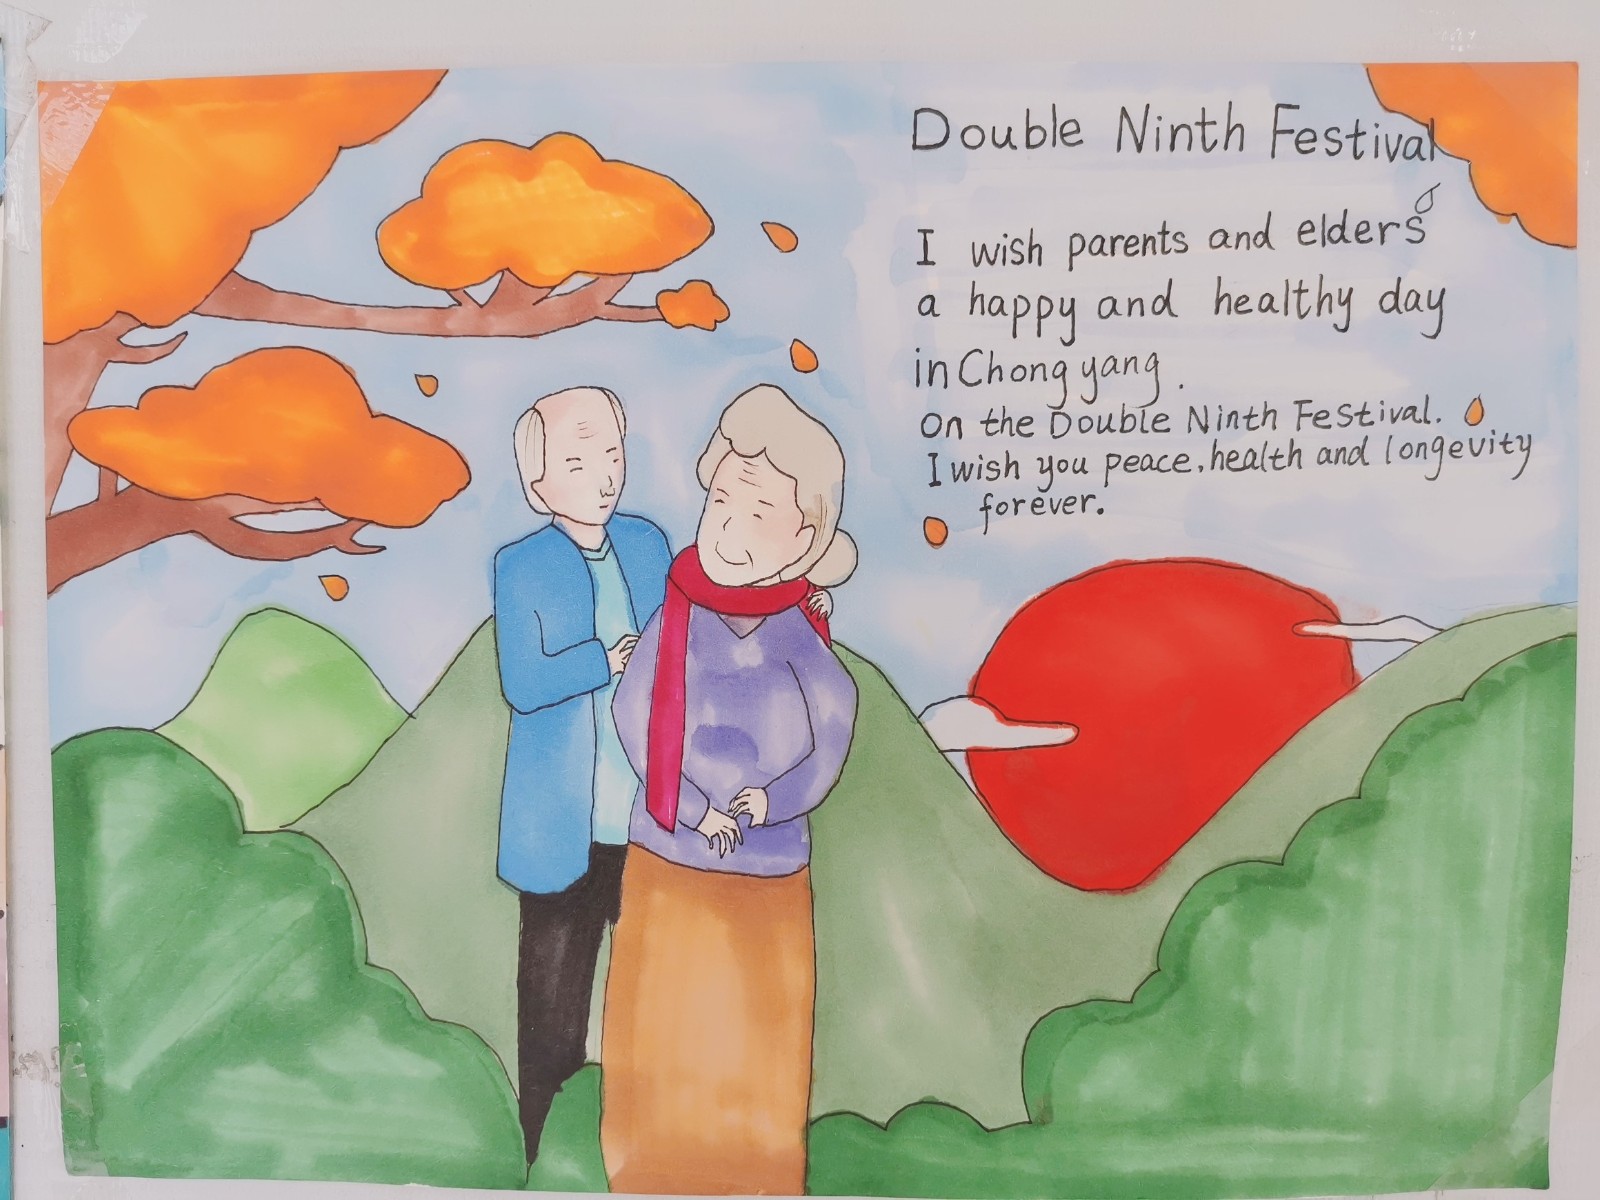 Double Ninth Festival
I wish parents and elders
a happy and healthy day
in Chong yang.
On the Double Ninth Festival.
I wish you peace, health and longevity
forever.